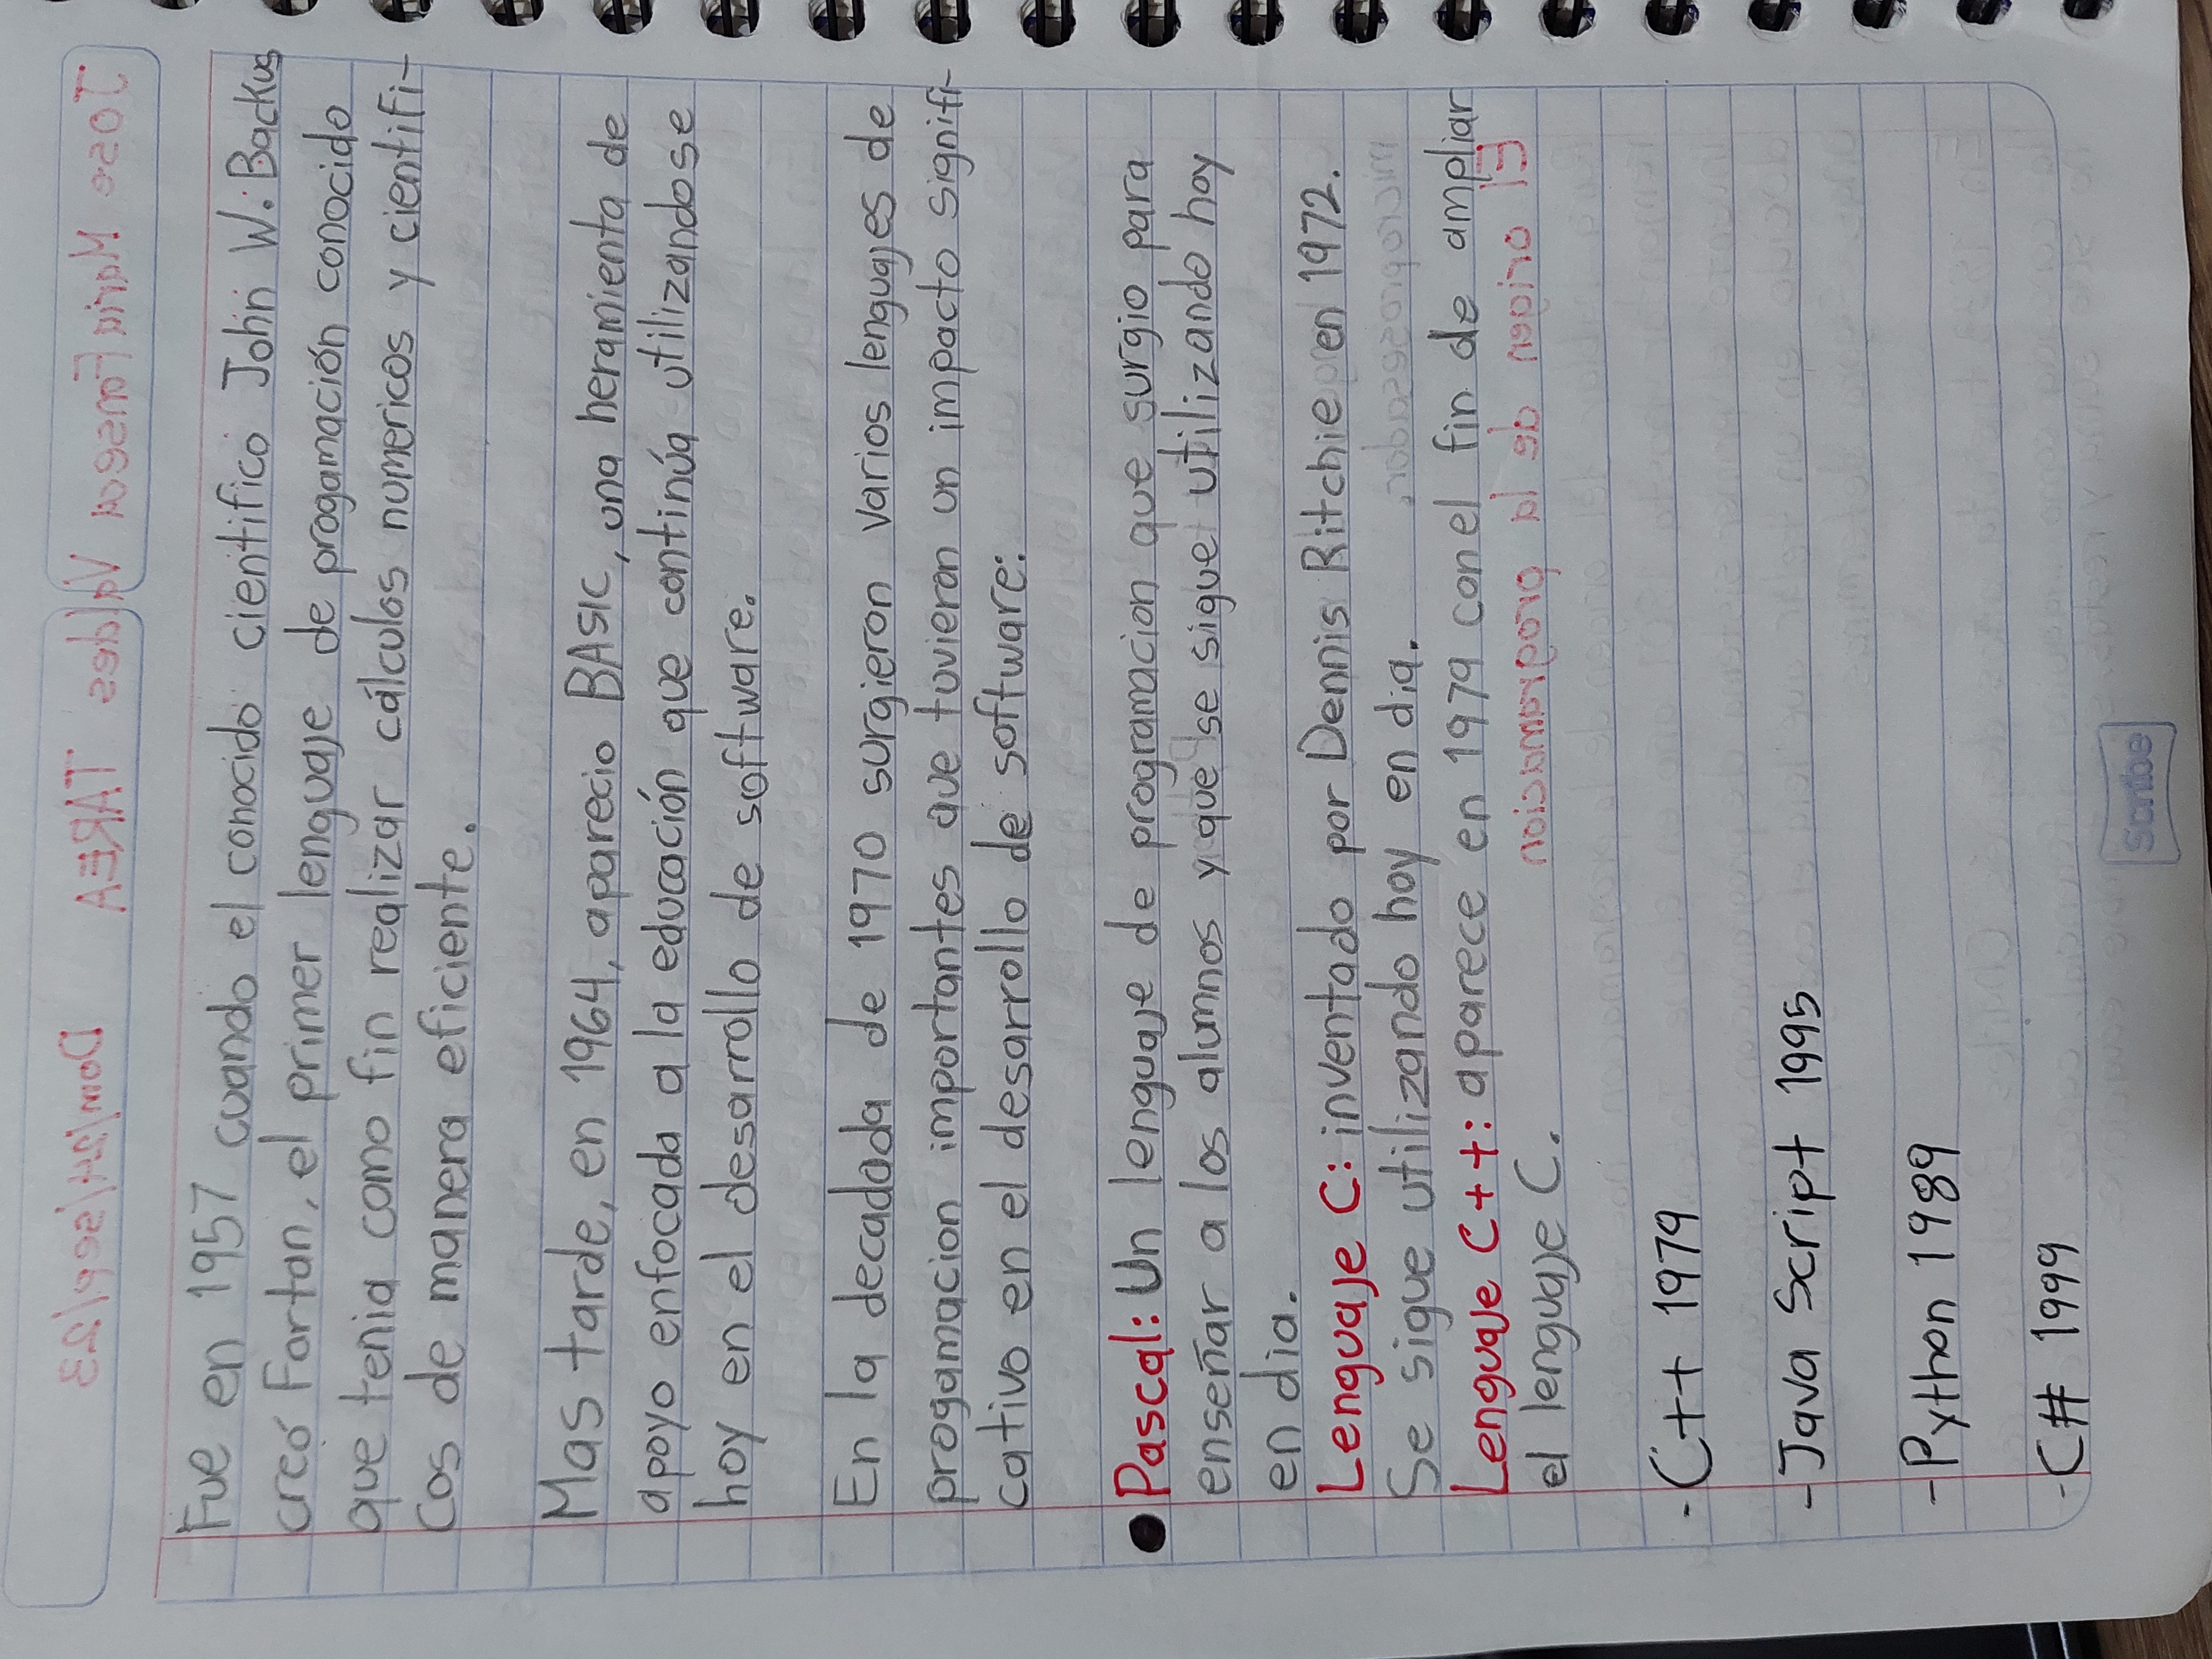 Fue en 1957 cuando el conocido cientifico John W. Backus
creó Fortan, el primer lenguaje de progamación conocido
que tenia como fin realizar cálculos numericos y cientifi-
cos de manera eficiente.
Mas tarde, en 1964, aparecio BASIC, una heramienta de
apoyo enfocada a la educación que continúa utilizandose
hoy en el desarrollo de software.
En la decadada de 1970 surgieron varios lenguajes de
progamacion importantes que tuvieron un impacto signifi-
cativo en el desarrollo de software:
● Pascal: Un lenguaje de programacion que surgio para
enseñar a los alumnos y que se sigue utilizando hoy
en dia.
Lenguaje C: inventado por Dennis Ritchie en 1972.
Se sigue utilizando hoy en dia.
Lenguaje C++: aparece en 1979 con el fin de ampliar
el lenguaje C.
- C++ 1979
- Java Script 1995
- Python 1989
- C# 1999
Scribe
Jose Maria Fonseca Valdes TAREA Dom/24/sep/23
El origen de la programacion
microprocesador.